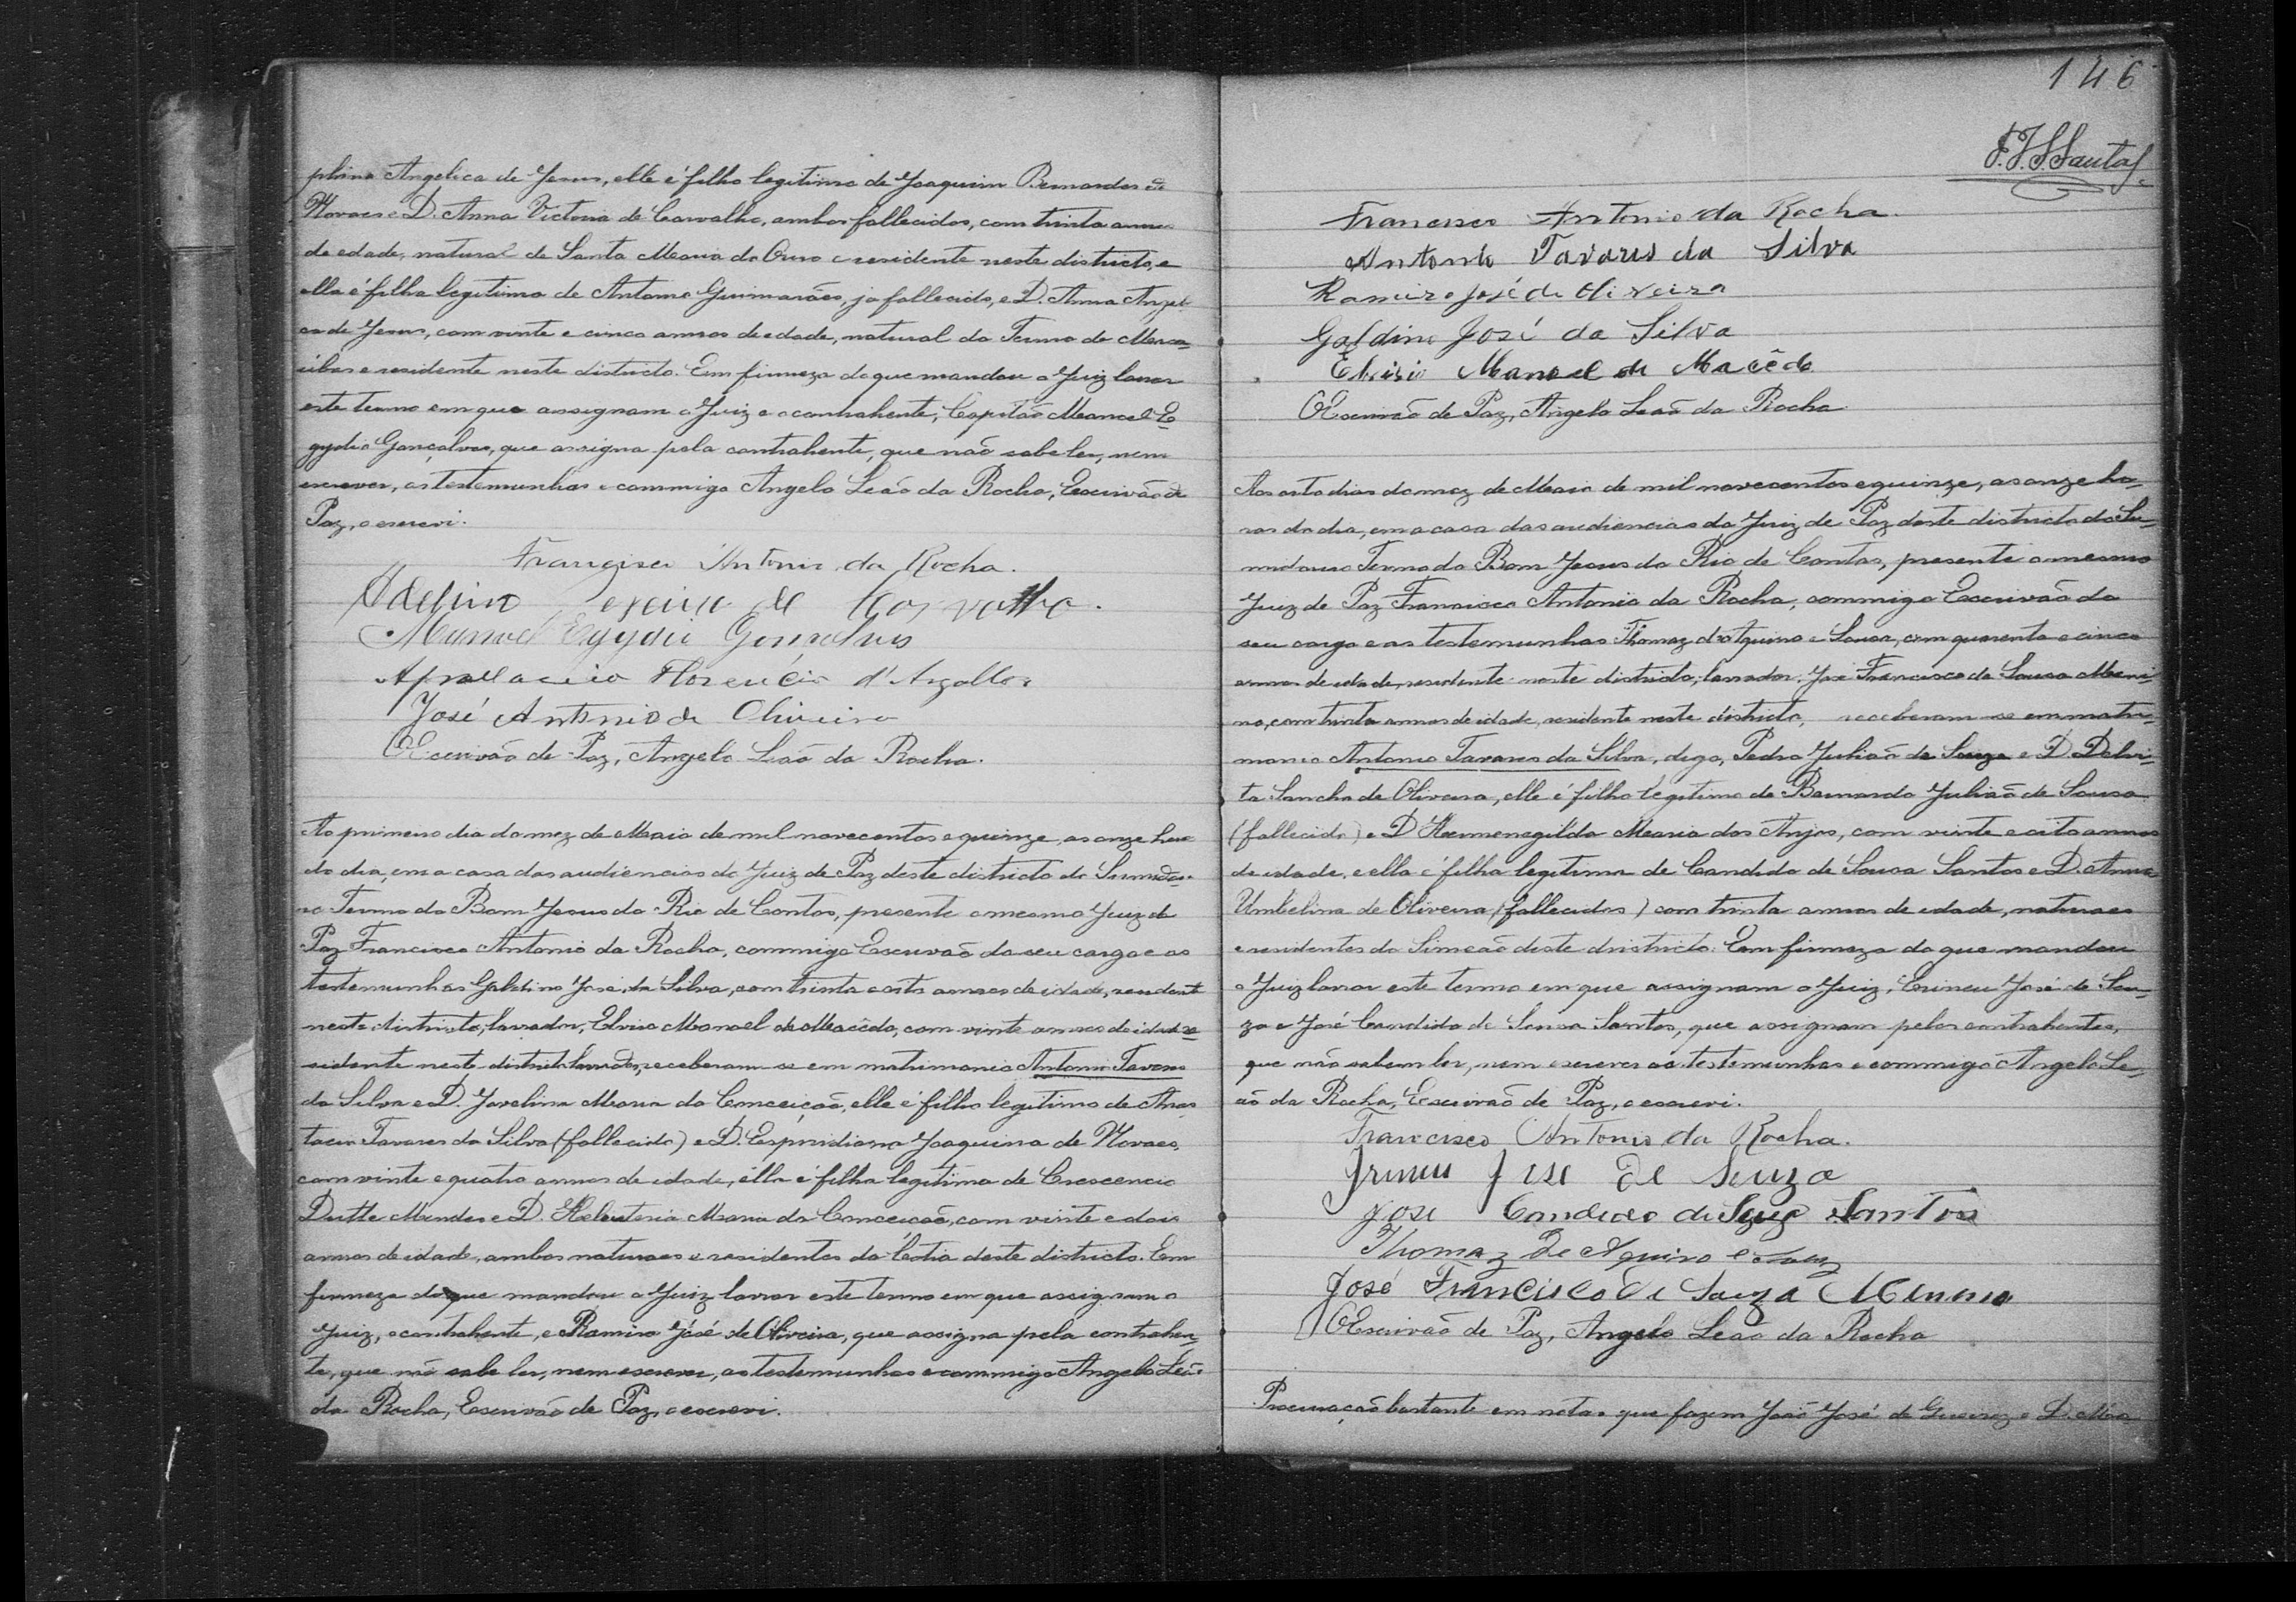 phina Angelica de Jesus, elle é filho legitimo de Joaquim Bernardes de
Novaes e D. Anna Victoria de Carvalho, ambos fallecidos, com trinta annos
de edade, natural de Santa Maria do Ouro e residente neste districto, e
ella é filha legitima de Antonio Guimarães, ja fallecido, e D. Anna Angeli
ca de Jesus, com vinte e cinco annos de edade, natural do Termo de Maca-
úbas e residente neste districto. Em firmeza do que mandou o Juiz lavrar
este termo em que assignam o Juiz e o contrahente, Capitão Manoel E-
gydio Gonçalves, que assigna pela contrahente, que não sabe ler, nem
escrever, as testemunhas e commigo Angelo Leão da Rocha, Escrivão de
Paz, o escrevi.
Francisco Antonio da Rocha.
Adelino de Carvalho.
Manoel Egydio Gonçalves
Florencio d'Argollo
José Antonio de Oliveira
O Escrivão de Paz, Angelo Leão da Rocha.
Ao primeiro dia do mez de Maio de mil novecentos e quinze, as onze horas
do dia, em a casa das audiencias do Juiz de Paz deste districto do Sumidou-
ro Termo do Bom Jesus do Rio de Contas, presente o mesmo Juiz de
Paz Francisco Antonio da Rocha, commigo Escrivão do seu cargo e as
testemunhas Galdino José da Silva, com trinta e oito annos de idade, residente
neste districto, lavrador, Elvisio Manoel de Macêdo, com vinte annos de idade re-
sidente neste districto lavrador, receberam-se em matrimonio Antonio Tavares
da Silva e D. Jovelina Maria da Conceição, elle é filho legitimo de Anas
tacio Tavares da Silva (fallecido) e D. Espiridiana Joaquina de Novaes,
com vinte e quatro annos de idade, ella é filha legitima de Crescencio
Dutte Mendes e D. Heleuteria Maria da Conceição, com vinte e dois
annos de idade, ambos naturaes e residentes da Cotia deste districto. Em
firmeza do que mandou o Juiz lavrar este termo em que assignam o
Juiz, o contrahente, e Ramiro José de Oliveira, que assigna pela contrahen-
te, que não sabe ler, nem escrever, as testemunhas e commigo Angelo Leão
da Rocha, Escrivão de Paz, o escrevi.
146
F.J.S Santos
Francisco Antonio da Rocha.
Antonio Tavares da Silva
Ramiro José de Oliveira
Galdino José da Silva
Elvisio Manoel de Macêdo
O Escrivão de Paz, Angelo Leão da Rocha
Aos oito dias do mez de Maio de mil novecentos e quinze, as onze ho-
ras do dia, em a casa das audiencias do Juiz de Paz deste districto do Su-
midouro Termo do Bom Jesus do Rio de Contas, presente o mesmo
Juiz de Paz Francisco Antonio da Rocha, commigo Escrivão do
seu cargo e as testemunhas Thomaz de Aquino e Sousa, com quarenta e cinco
annos de edade, residente neste districto, lavrador, José Francisco de Sousa Meni-
no, com trinta annos de idade, residente neste districto, receberam-se em matri-
monio Antonio Tavares da Silva, digo, Pedro Julião de Souza e D. Delvi-
ta Sancha de Oliveira, elle é filho legitimo de Bernardo Julião de Sousa
(fallecido) e D. Hermenegilda Maria dos Anjos, com vinte e oito annos
de idade, e ella é filha legitima de Candido de Sousa Santos e D. Anna
Umbelina de Oliveira (fallecidos) com trinta annos de edade, naturaes
e residentes do Simeão deste districto. Em firmeza do que mandou
o Juiz lavrar este termo em que assignam o Juiz, Erineu José de Sou-
za e José Candido de Sousa Santos, que assignam pelos contrahentes,
que não sabem ler, nem escrever as testemunhas e commigo Angelo Le-
ão da Rocha, Escrivão de Paz, o escrevi.
Francisco Antonio da Rocha.
Irineu José de Souza
José Candido de Souza Santos
Thomaz de Aquino e Souz
José Francisco de Souza Menino
O Escrivão de Paz, Angelo Leão da Rocha
Procuração bastante em nota que fazem João José de Queiroz e D. Ma